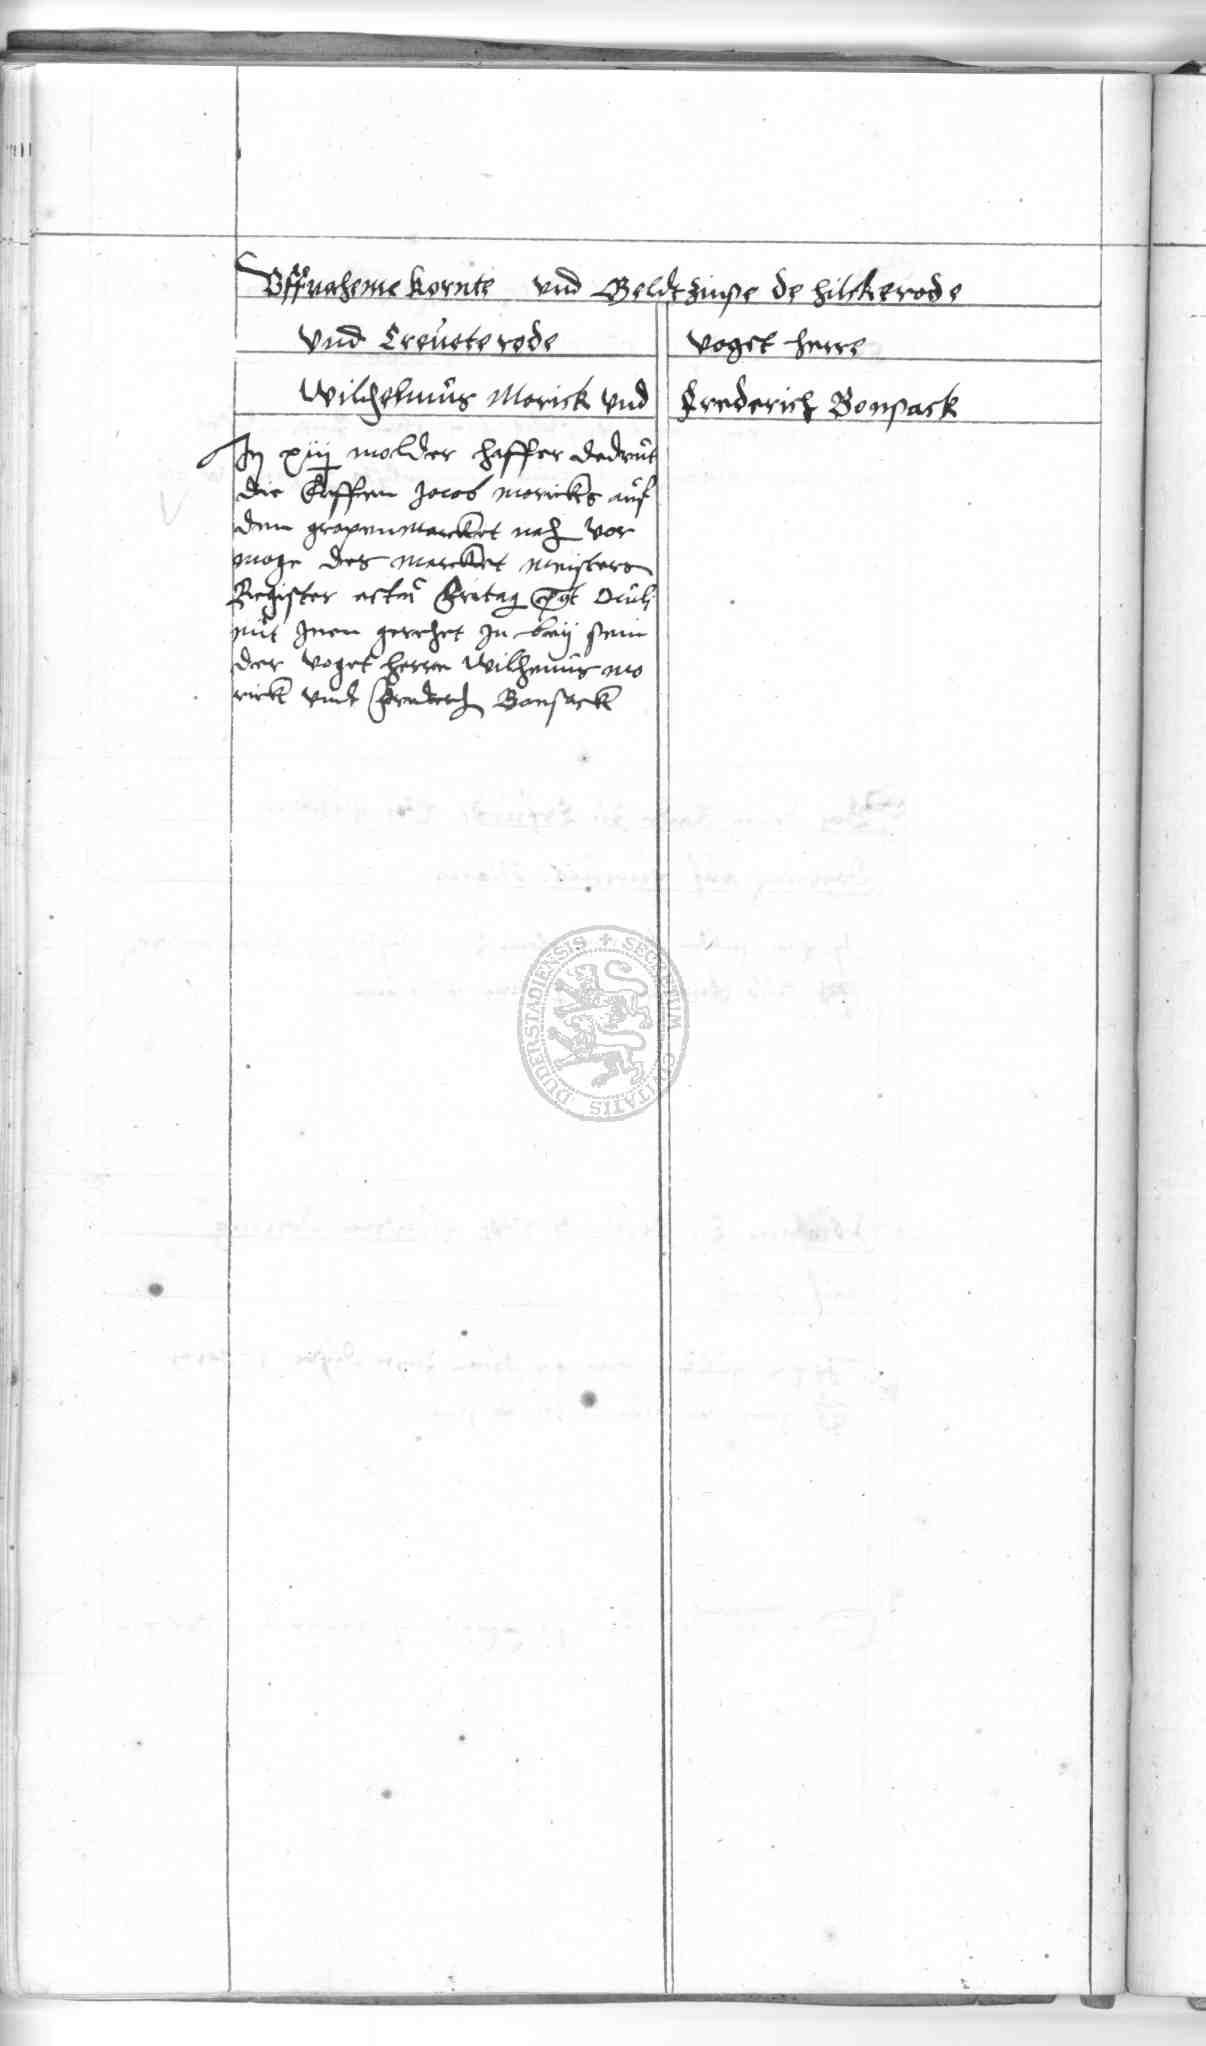 Vffnaheme kornte vnd Geldtzinse de hilckerode
vnd Creuete rode voget herre
Wilhelmus Morick vnd Frederich Bonsack
In xiij molder haffer dedrut
die Erffen Jacob moricks auf
dem gropenmarcket nach vor
moge des marcket meisters
Register actu Fritag post Oculi
mit Inen gerechet In bey sein
der voget herren Wilhemus mo
rick vnd Frederich Bonsack
SECRETUM CIVITATIS DUDERSTADIENSIS